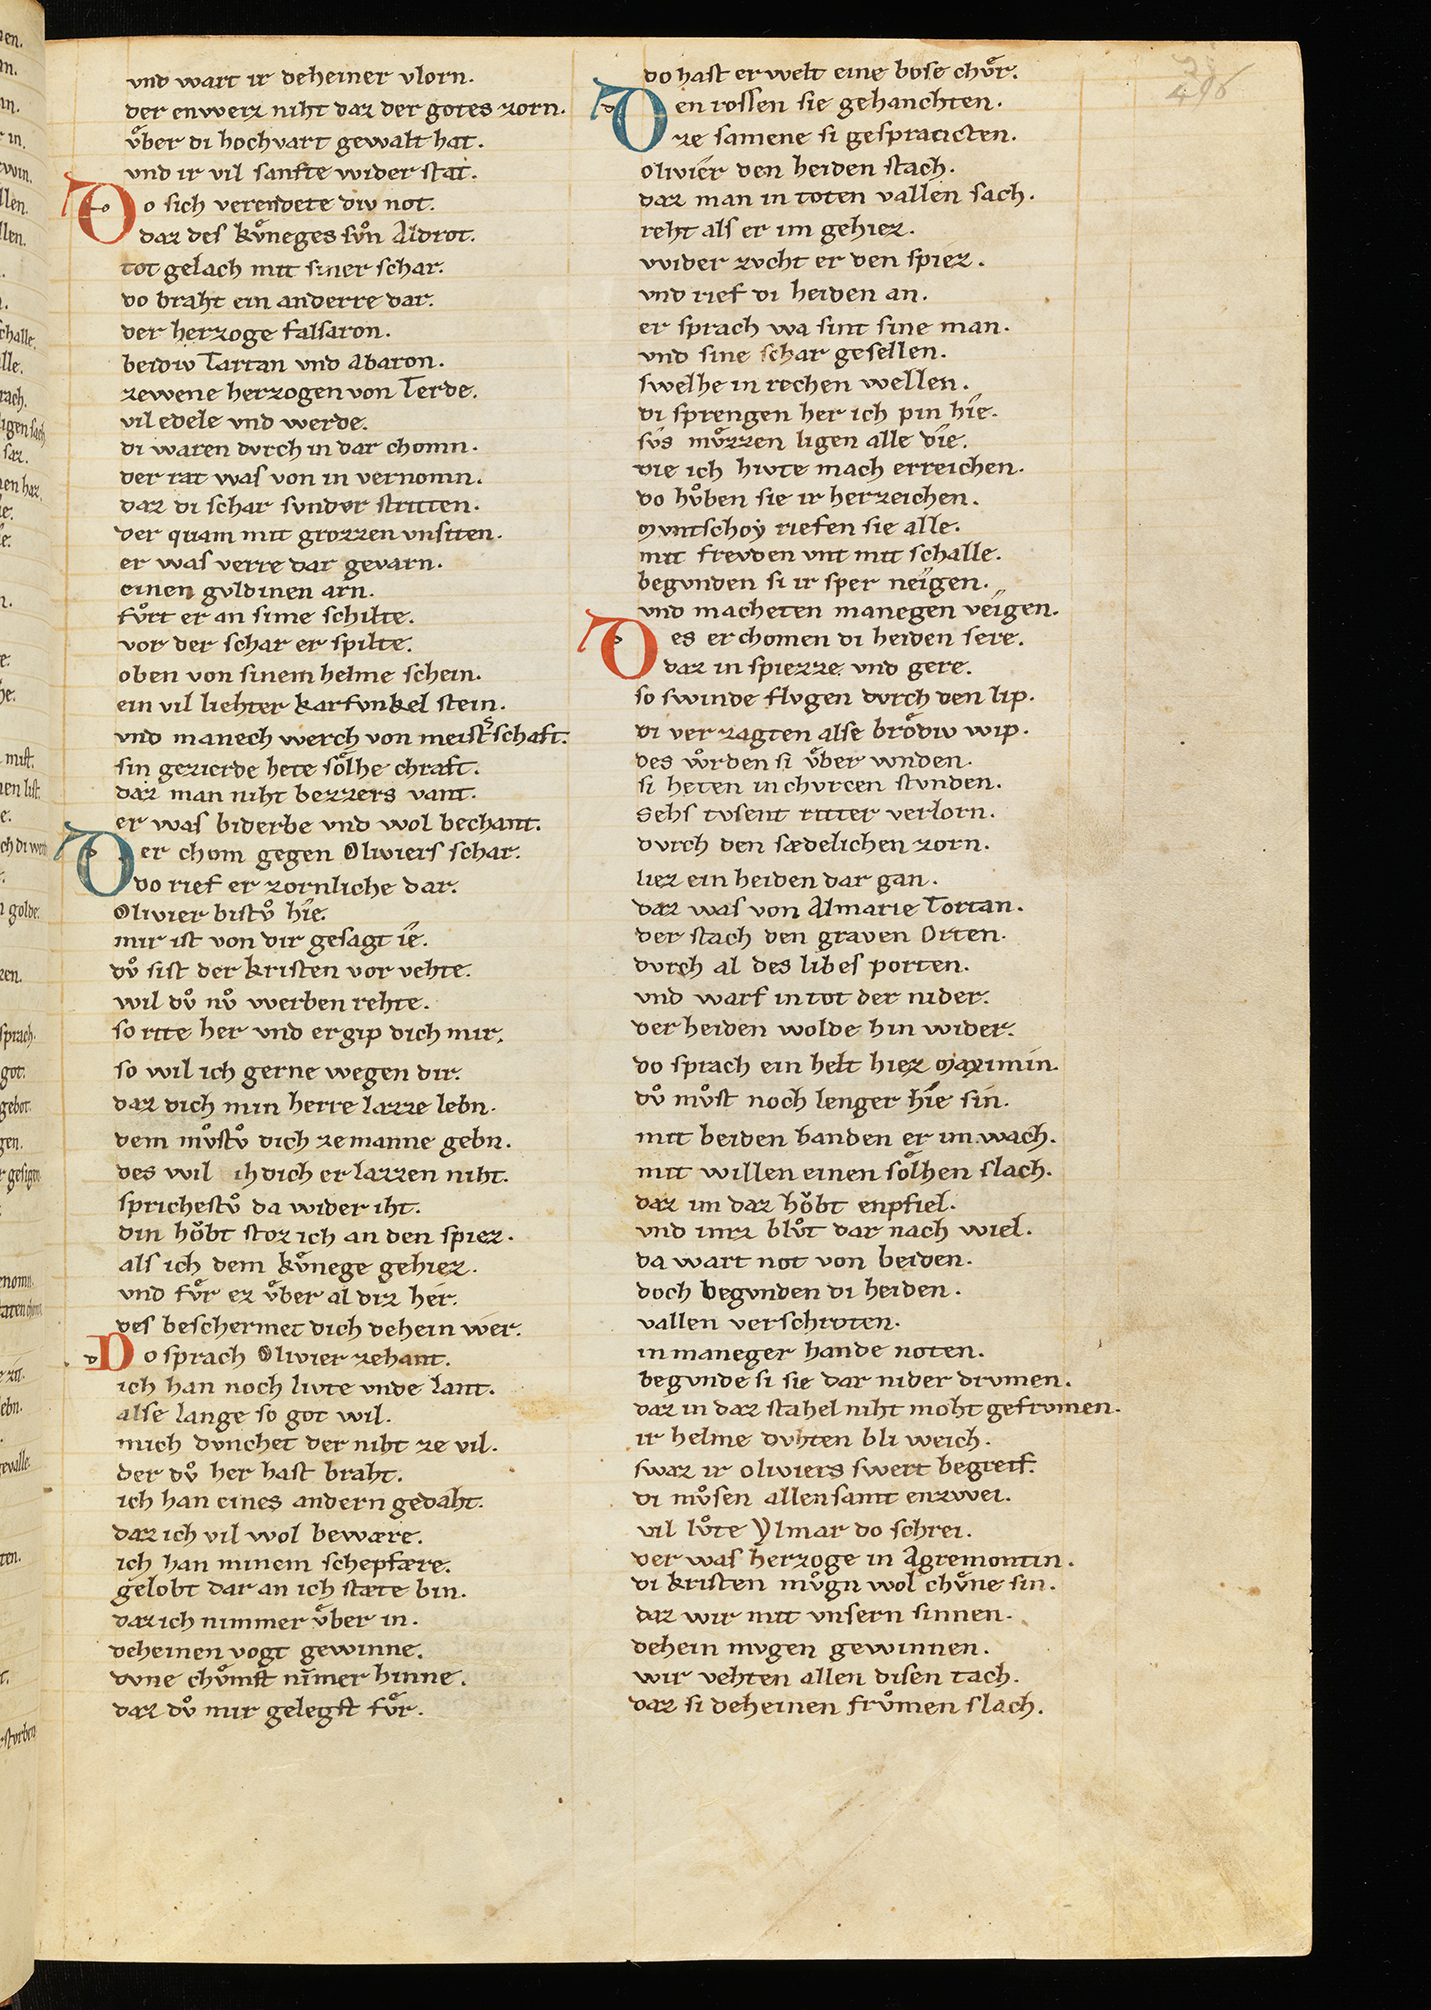 vnd wart ir deheiner vlorn.
der enweiz niht daz der gotes zorn.
vͤber di hochvart gewalt hat.
vnd ir vil sanfte wider stat.
Do sich verendete div not.
daz des kvͤneges svͦn Aldrot.
tot gelach mit siner schar.
do braht ein anderre dar.
der herzoge falsaron.
beidiv Tartan vnd Abaron.
zewene herzogen von Terde.
vil edele vnd werde.
di waren dvrch in dar chomn.
der rat was von in vernomn.
daz di schar svnder stritten.
der quam mit grozzen vnsiten.
er was verre dar gevarn.
einen gvldinen arn.
fvͦrt er an sime schilte.
vor der schar er spilte.
oben von sinem helme schein.
ein vil liehter karfvnkel stein.
vnd manech werch von meistˢschaft.
sin gezierde hete soͤlhe chraft.
daz man niht bezzers vant.
er was biderbe vnd wol bechant.
Der chom gegen Oliviers schar.
do rief er zornliche dar.
Olivier bistvͦ hie.
mir ist von dir gesagt ie.
dvͦ sist der kristen vor vehte.
wil dvͦ nvͦ werben rehte.
so rite her vnd ergip dich mir.
so wil ich gerne wegen dir.
daz dich min herre lazze lebn.
dem mvͦstvͦ dich zemanne gebn.
des wil ih dich erlazzen niht.
sprichestvͦ da wider iht.
din hoͮbt stoz ich an den spiez.
als ich dem kvͤnege gehiez.
vnd fvͤr ez vͤber al diz her.
des beschermet dich dehein wer.
Do sprach Olivier zehant.
ich han noch livte vnde lant.
alse lange so got wil.
mich dvnchet der niht ze vil.
der dvͦ her hast braht.
ich han eines andern gedaht.
daz ich vil wol bewære.
ich han minem schepfære.
gelobt dar an ich stæte bin.
daz ich nimmer vͤber in.
deheinen vogt gewinne.
dvne chvͦmst nīmer hinne.
daz dvͦ mir gelegst fvͤr.
do hast erwelt eine bose chvͤr.
Den rossen sie gehanchten.
ze samene si gespracten.
olivier den heiden stach.
daz man in toten vallen sach.
reht als er im gehiez.
wider zvcht er den spiez.
vnd rief di heiden an.
er sprach wa sint sine man.
vnd sine schar gesellen.
swelhe in rechen wellen.
di sprengen her ich pin hie.
svs mvͤzzen ligen alle die.
die ich hivte mach erreichen.
do hvͦben sie ir herzeichen.
Mvntschoẏ riefen sie alle.
mit frevden vnt mit schalle.
begvnden si ir sper neigen.
vnd macheten manegen veigen.
Des erchomen di heiden sere.
daz in spiezze vnd gere.
so swinde flvgen dvrch den lip.
di verzagten alse broͤdiv wip.
des wͦrden si vͤber wnden.
si heten in chvrcen stvnden.
Sehs tvsent ritter verlorn.
dvrch den sædelichen zorn.
liez ein heiden dar gan.
daz was von Almarie Tortan.
der stach den graven Orten.
dvrch al des libes porten.
vnd warf in tot der nider.
der heiden wolde hin wider.
do sprach ein helt hiez Maximin.
dvͦ mvͦst noch lenger hie sin.
mit beiden handen er im wach.
mit willen einen soͤlhen slach.
daz im daz hoͮbt enpfiel.
vnd imz blvͦt dar nach wiel.
da wart not von beiden.
doch begvnden di heiden.
vallen verschroten.
in maneger hande noten.
begvnde si sie dar nider drvmen.
daz in daz stahel niht moht gefrvmen.
ir helme dvhten bli weich.
swaz ir oliviers swert begreif.
di mvͦsen allensamt enzwei.
vil lvͦte Ylmar do schrei.
der was herzoge in Agremontin.
di kristen mvͤgn wol chvͤne sin.
daz wir mit vnsern sinnen.
dehein mvgen gewinnen.
wir vehten allen disen tach.
daz si deheinen frvͦmen slach.